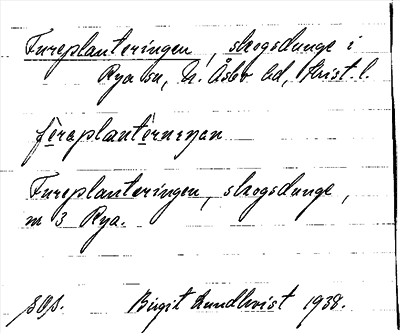 Fureplanteringen, skogsdunge i
Rya sn, N. Åsbo hd, Krist. l.
fereplanterneyan
Fureplanteringen, skogsdunge,
m 3 Rya.
sOp. Birgit Lundkvist 1938.